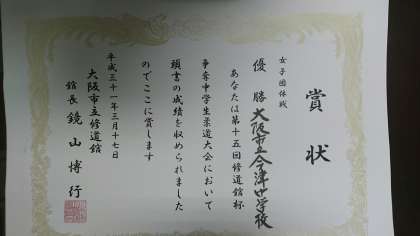 賞状
女子団体戦
優勝 大阪市立今津中学校
あなたは第十五回修道館杯
争奪中学生柔道大会において
頭書の成績を収められました
のでここに賞します
平成三十一年三月十七日
大阪市立修道館
館長 鏡山博行